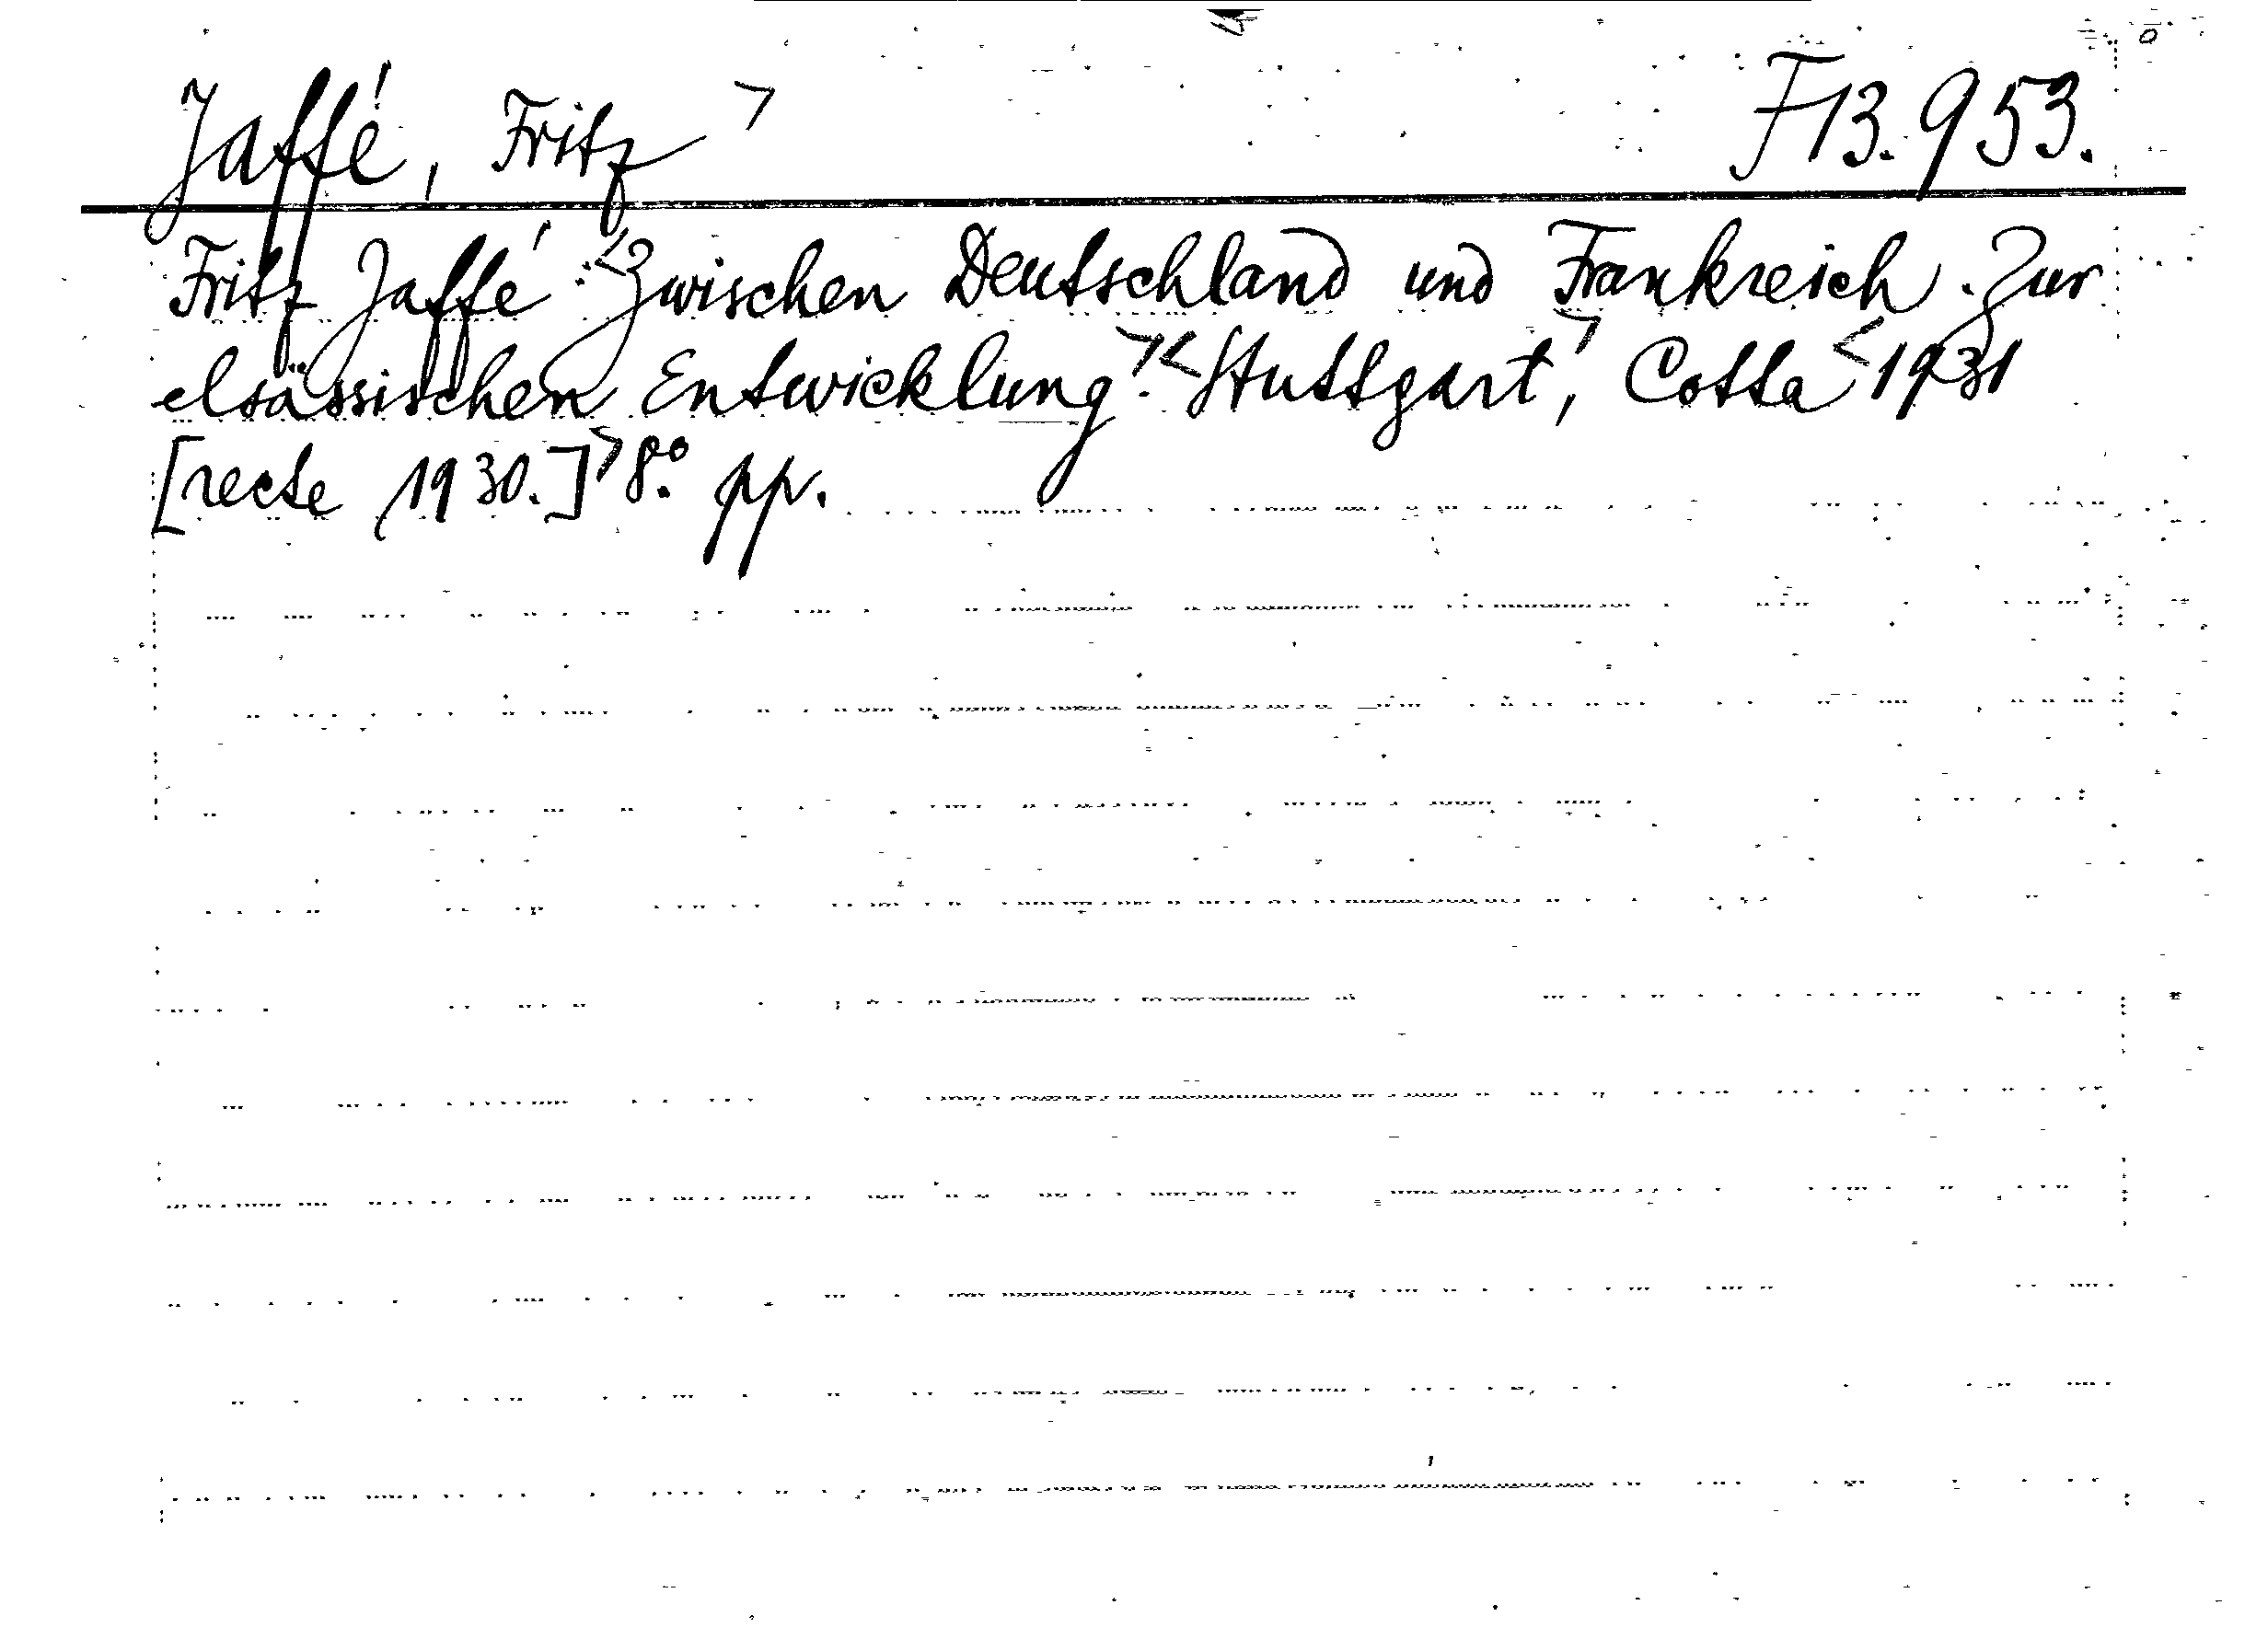 Jaffé, Fritz > F 13.953.
Fritz Jaffé: <Zwischen Deutschland und Frankreich. Zur
elsässischen Entwicklung.> <Stuttgart,> Cotta <1931
[recte 1930.]> 8.° pp.